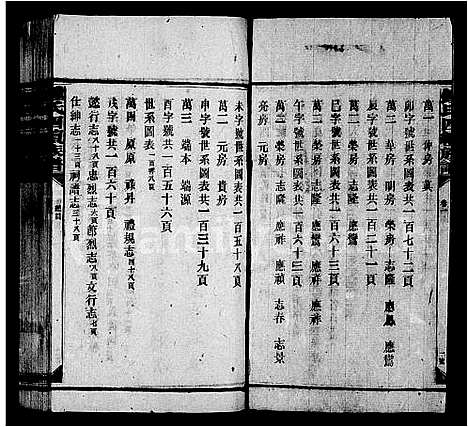 萬一 仲房 真
卯字號世系圖表共一百七十二頁
萬二 華房 明房 榮房 志隆 應鳳 應鸞
辰字號世系圖表共一百二十一頁
萬二 榮房 志隆 應鸞 應祥
巳字號世系圖表共一百六十三頁
萬二 榮房 志隆 應祥 應禎 志春 志景
午字號世系圖表共一百六十三頁
亮房
萬二 元房 貴房
未字號世系圖表共一百五十八頁
萬三 端本 端源
申字號世系圖表共一百三十九頁
酉字號共一百五十六頁
世系圖表
萬四 原原 祿丹 禮規志四十八頁
戌字號共一百六十頁
懿行志八十六頁 忠烈志六頁 節烈志 文行志七頁
仕紳志二十三頁 祠譜志三十八頁